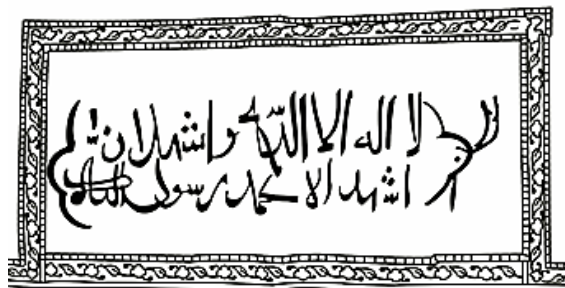 لا اله الا الله و اشهد ان
اشهد الا محمد رسول الله